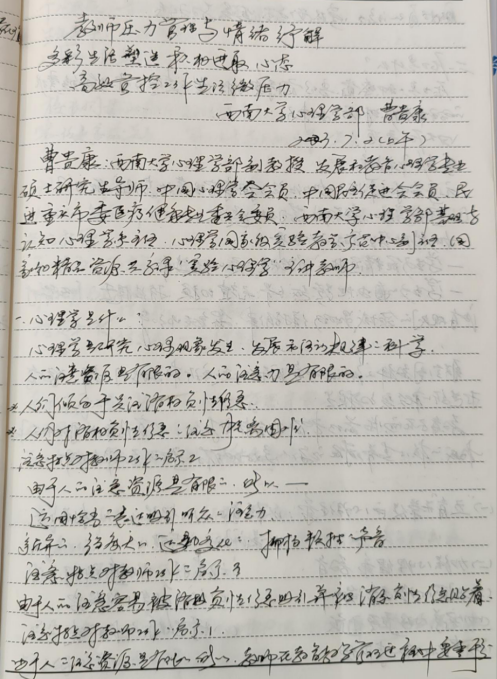 教师压力管理与情绪纾解
多彩生活塑造积极进取心态
高效掌控工作生活缓压力
西南大学心理学部 曹贵康
2023.7.2(上午)
曹贵康:西南大学心理学部副教授 发展和教育心理学专业
硕士研究生导师,中国心理学会会员,中国民主促进会会员,民
进重庆市委医药健康专委会委员,西南大学心理学部基础与
认知心理学系主任,心理学国家级实验教学示范中心副主任,国
家级精品资源共享课"实验心理学"主讲教师.
一.心理学是什么:
心理学是研究心理现象发生、发展和活动规律的科学.
人的注意资源是有限的。人的注意力是有限的。
*人们倾向于关注消极负性信息
*人们对消极负性信息:注意
注意特点对教师工作之启示2
由于人的注意资源是有限的,所以一
运用 吸引听众注意力
声音
注意特点对教师工作之启示3
由于人的注意容易被消极负性信息吸引并 消极负性信息
注意特点对教师工作之启示1
由于人的注意资源是有限的 所以,教师在教育教学的过程中要重视